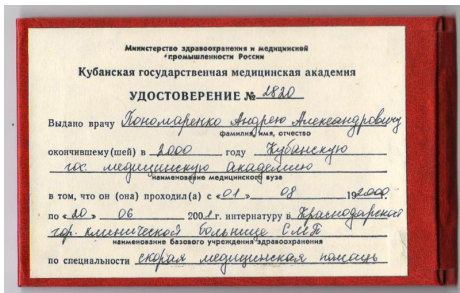 Министерство здравоохранения и медицинской
промышленности России
Кубанская государственная медицинская академия
УДОСТОВЕРЕНИЕ № 2820
Выдано врачу Пономаренко Андрею Александровичу
фамилия, имя, отчество
окончившему(шей) в 2000 году Кубанскую
гос. медицинскую академию
наименование медицинского вуза
в том, что он (она) проходил(а) с «01» 08 192000
по «20» 06 2001 г. интернатуру в Краснодарской
гор. клинической больнице СМП
наименование базового учреждения здравоохранения
по специальности скорая медицинская помощь